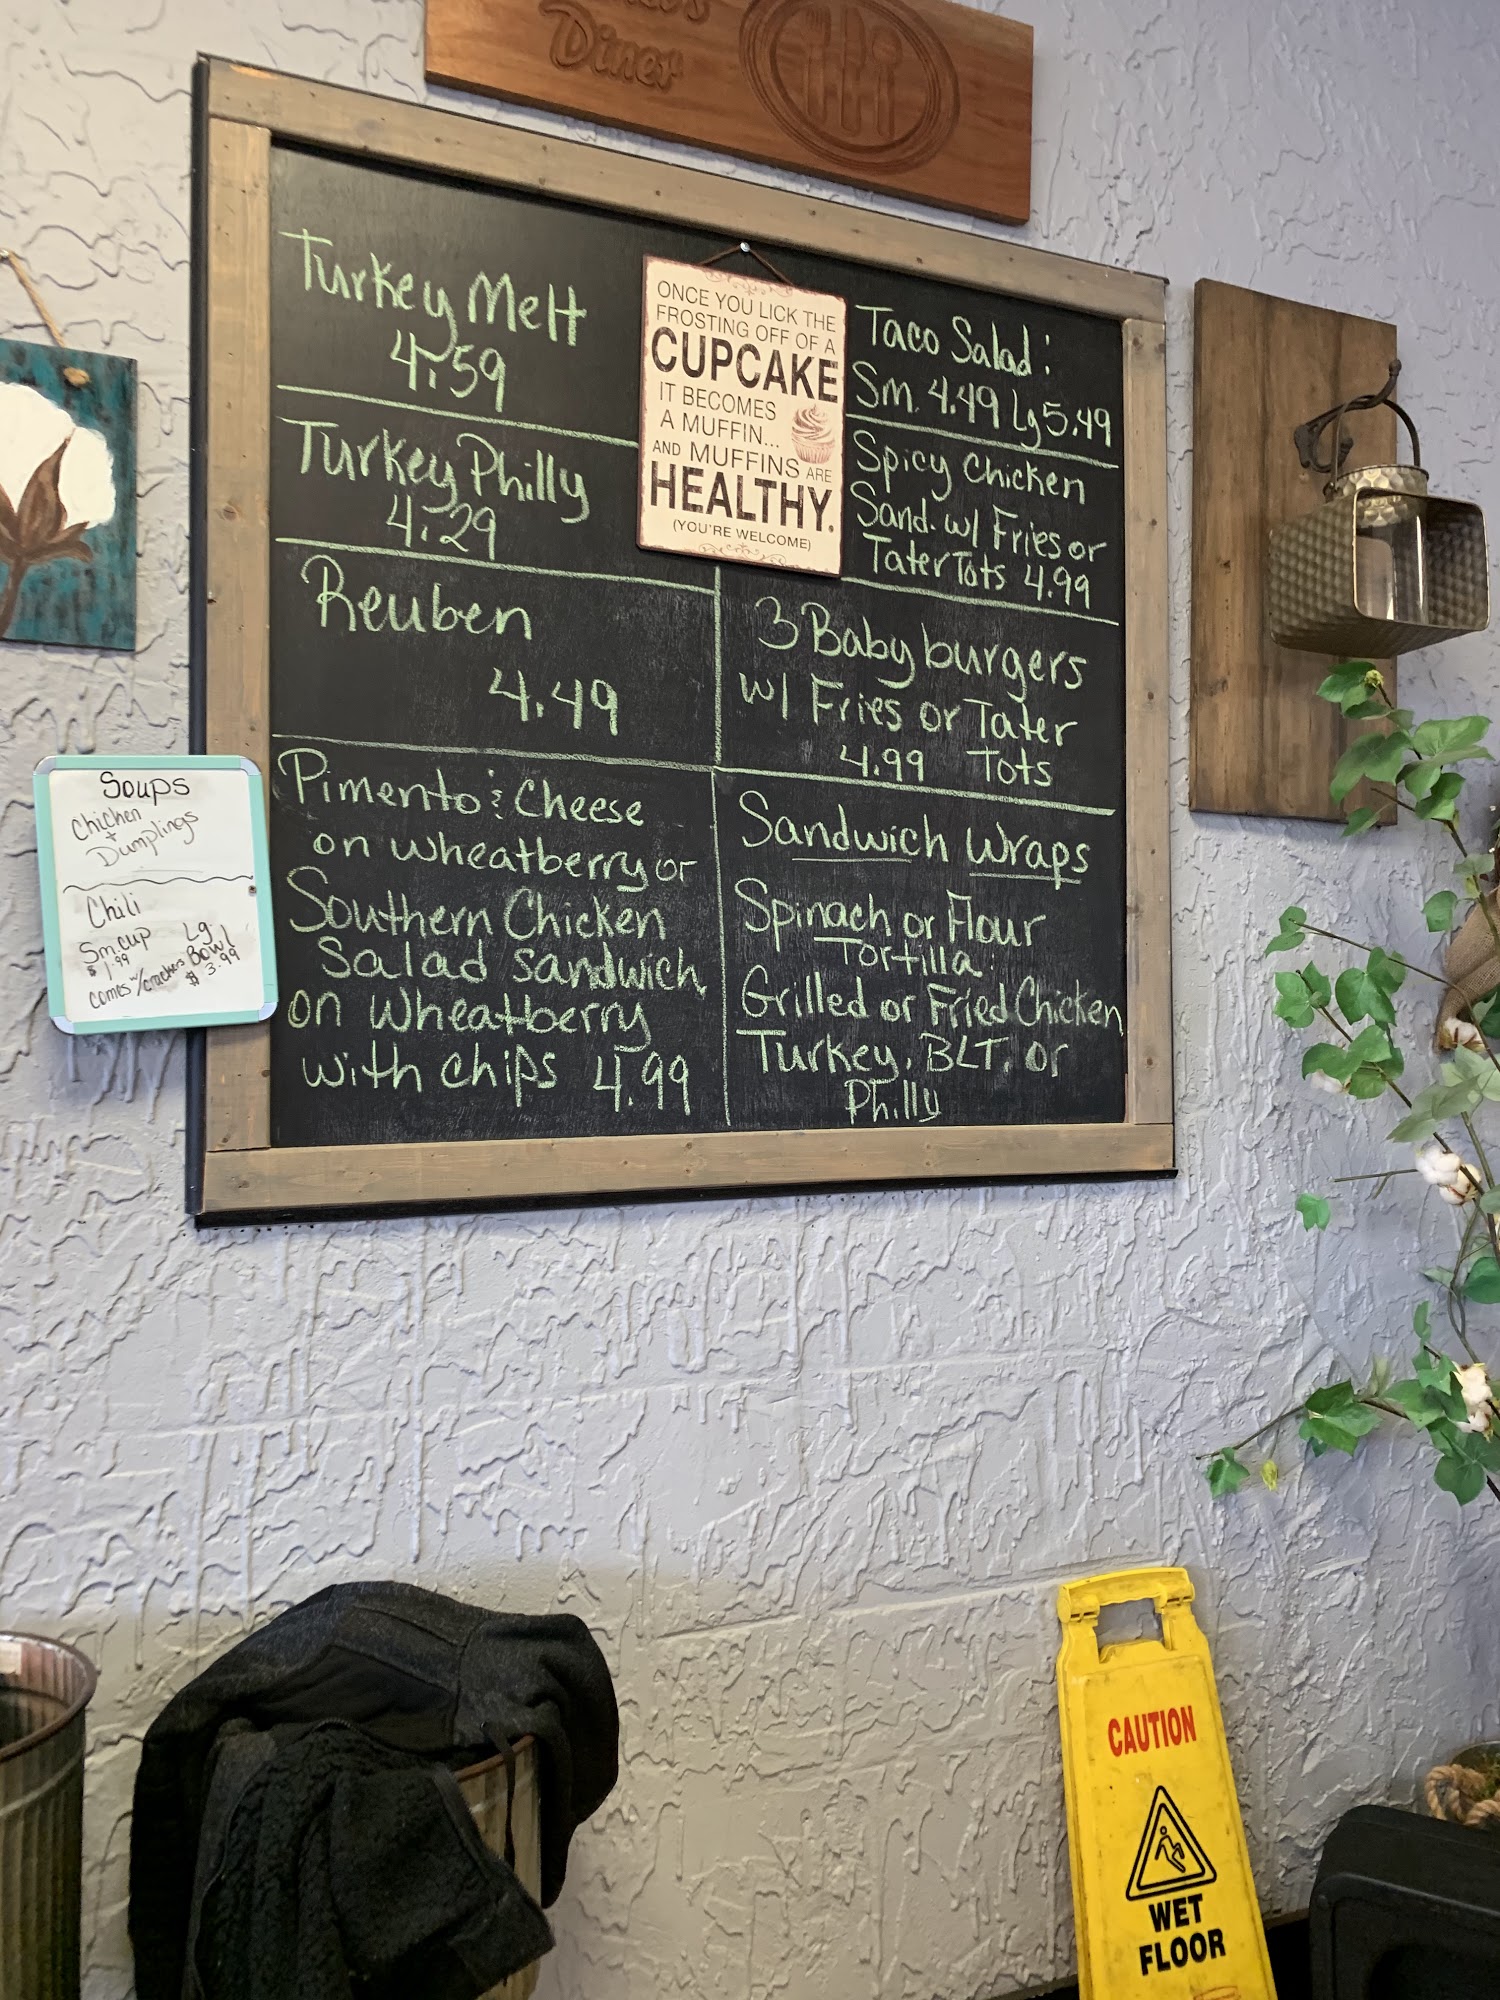 Diner
Turkey Melt
4.59
Turkey Philly
4.29
Reuben
4.49
Pimento & Cheese
on wheatberry or
Southern Chicken
Salad sandwich
on wheatberry
with chips 4.99
ONCE YOU LICK THE
FROSTING OFF OF A
CUPCAKE
IT BECOMES
A MUFFIN...
AND MUFFINS ARE
HEALTHY.
(YOU'RE WELCOME)
Taco Salad:
Sm. 4.49 Lg 5.49
Spicy Chicken
Sand. w/ Fries or
Tater Tots 4.99
3 Baby burgers
w/ Fries or Tater
4.99 Tots
Sandwich Wraps
Spinach or Flour
Tortilla.
Grilled or Fried Chicken
Turkey, BLT, or
Philly
Soups
Chicken
+
Dumplings
Chili
Sm. cup Lg
$1.99 Bowl
comes w/ crackers $3.99
CAUTION
WET
FLOOR